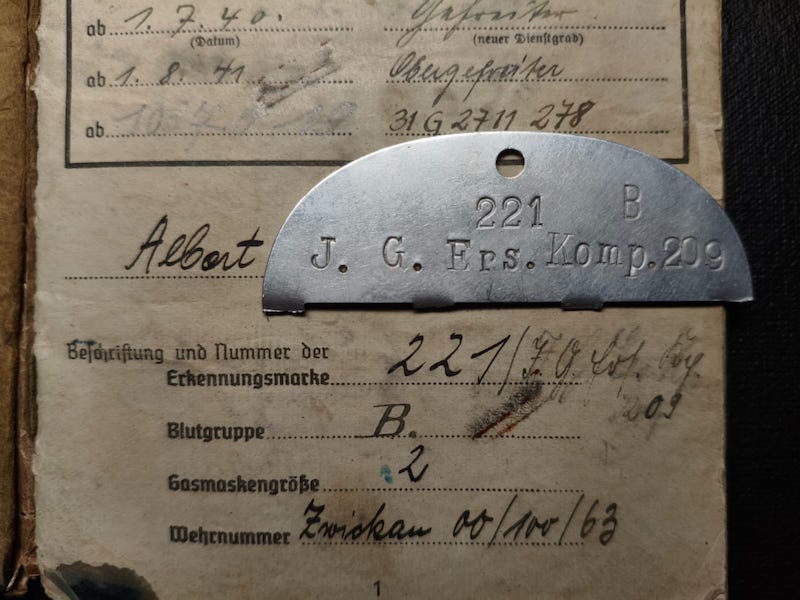 ab 1. 7. 40. Gefreiter
(Datum) (neuer Dienstgrad)
ab 1. 8. 41 Obergefreiter
ab 31 G 2711 278
221 B
J. G. Ers. Komp. 209
Albert
Beschriftung und Nummer der
Erkennungsmarke 221/J. G. Ers. Kp.
209
Blutgruppe B.
Gasmaskengröße 2
Wehrnummer Zwickau 00/100/63
1